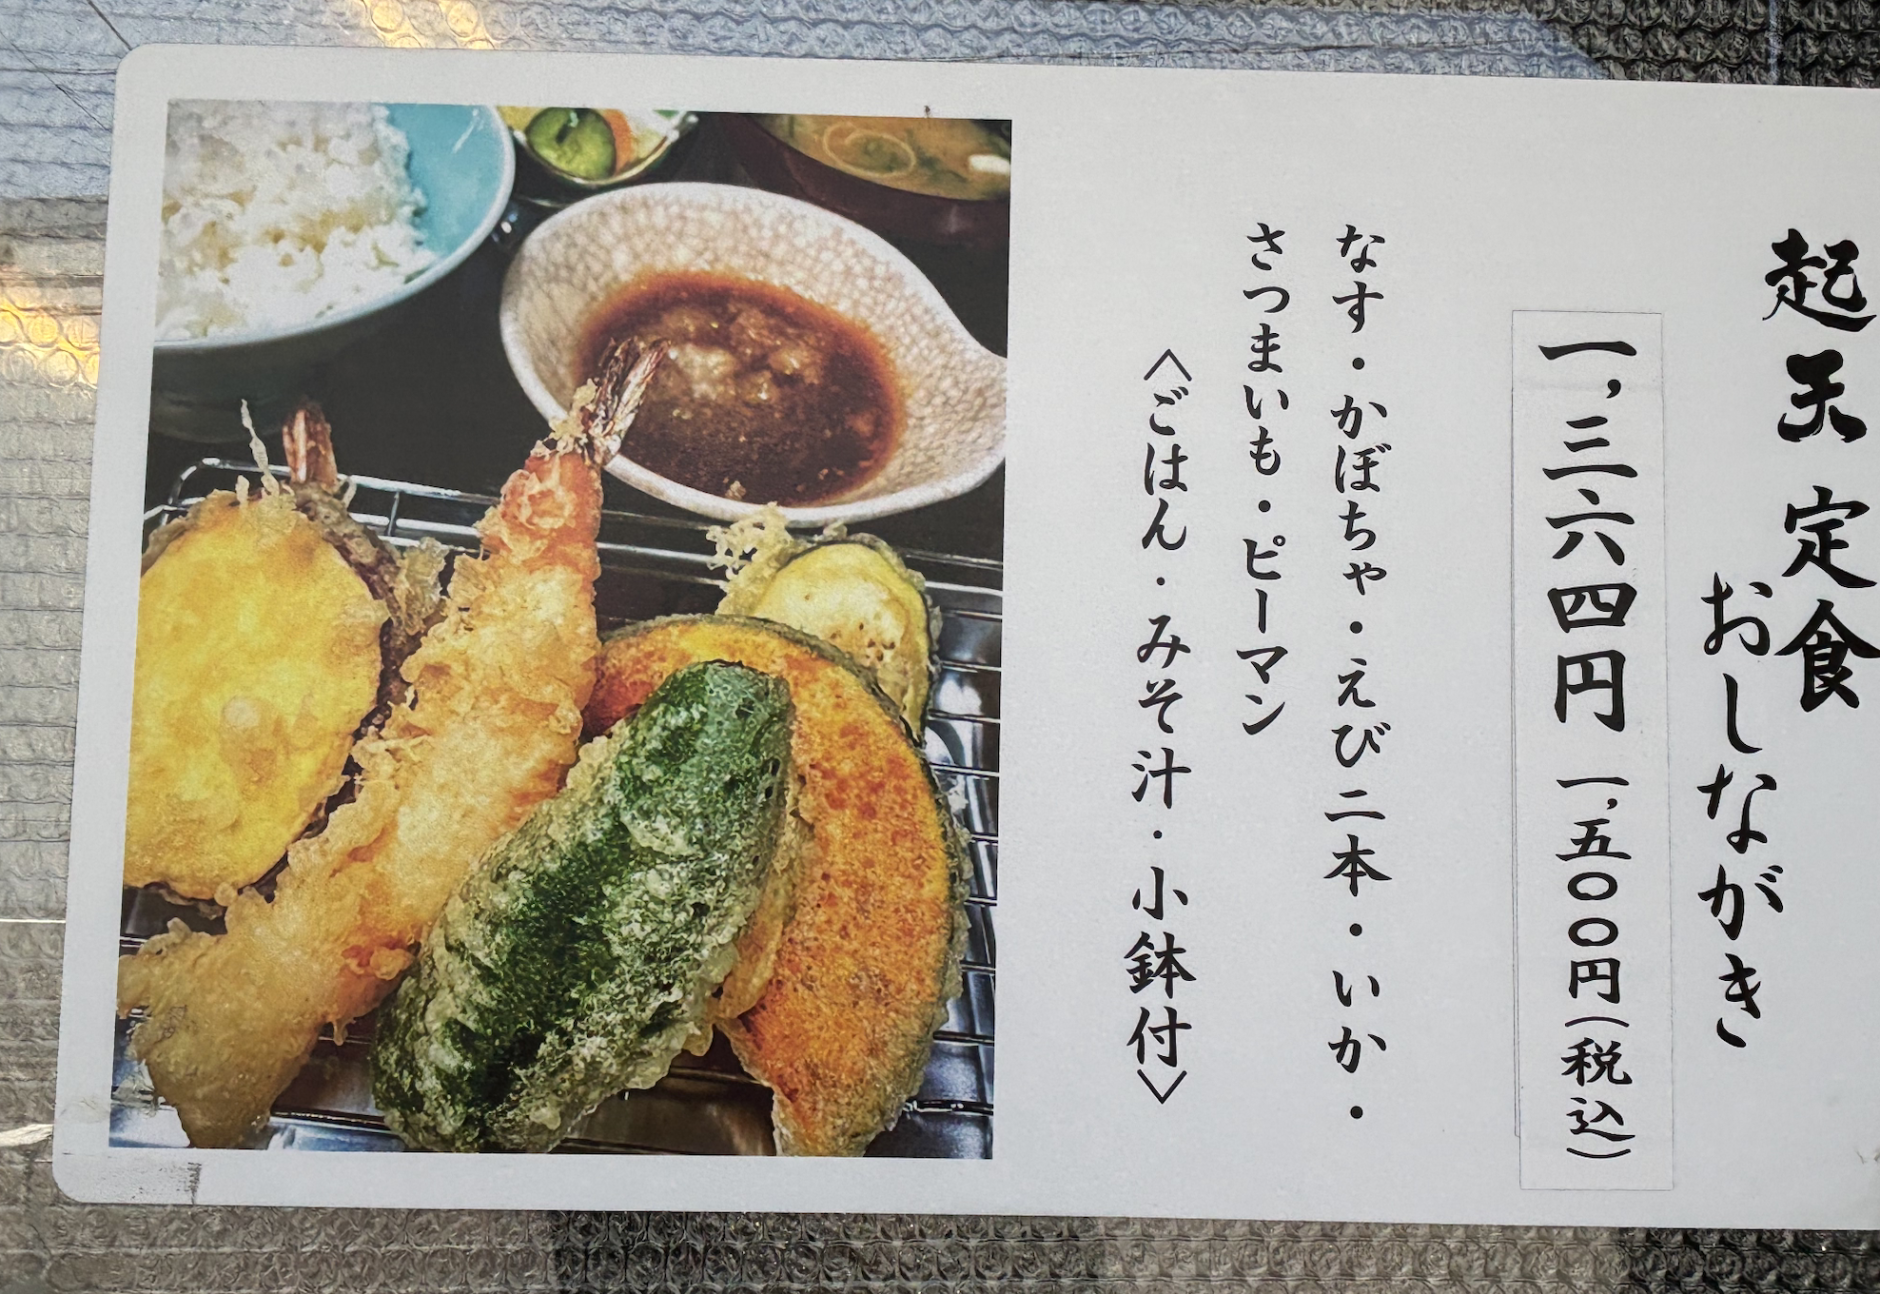 起天定食
おしながき
一,三六四円 一,五〇〇円(税込)
なす・かぼちゃ・えび二本・いか・
さつまいも・ピーマン
〈ごはん・みそ汁・小鉢付〉